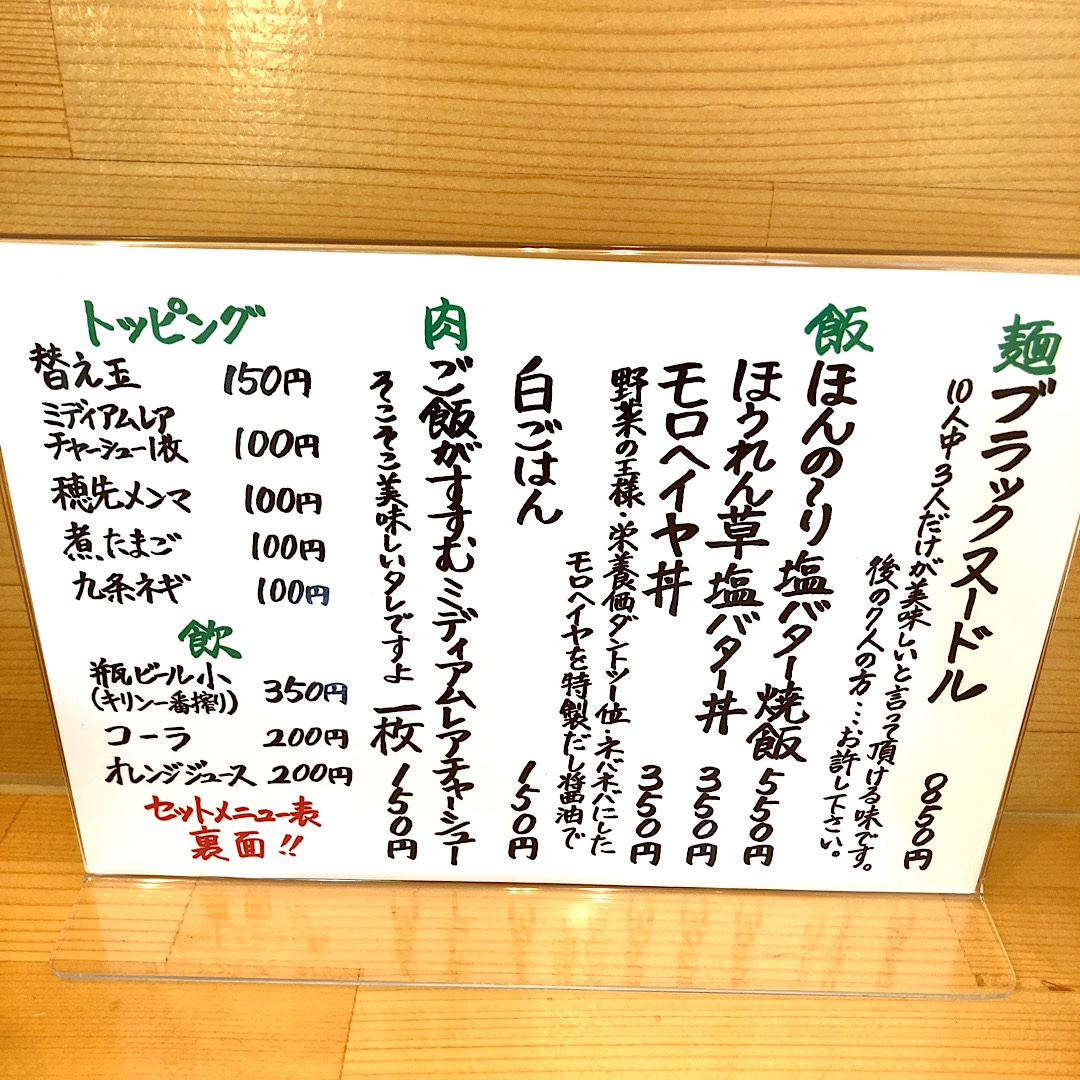 麺
ブラックヌードル 850円
10人中3人だけが美味しいと言って頂ける味です。
後の7人の方…お許し下さい。
飯
ほんの〜り塩バター焼飯 550円
ほうれん草塩バター丼 350円
モロヘイヤ丼 350円
野菜の王様・栄養価ダントツ一位・ネバネバにした
モロヘイヤを特製だし醤油で
白ごはん 150円
肉
ご飯がすすむミディアムレアチャーシュー
そこそこ美味しいタレですよ 一枚 150円
トッピング
替え玉 150円
ミディアムレア
チャーシュー1枚 100円
穂先メンマ 100円
煮たまご 100円
九条ネギ 100円
飲
瓶ビール小 350円
(キリン一番搾り)
コーラ 200円
オレンジジュース 200円
セットメニュー表
裏面!!